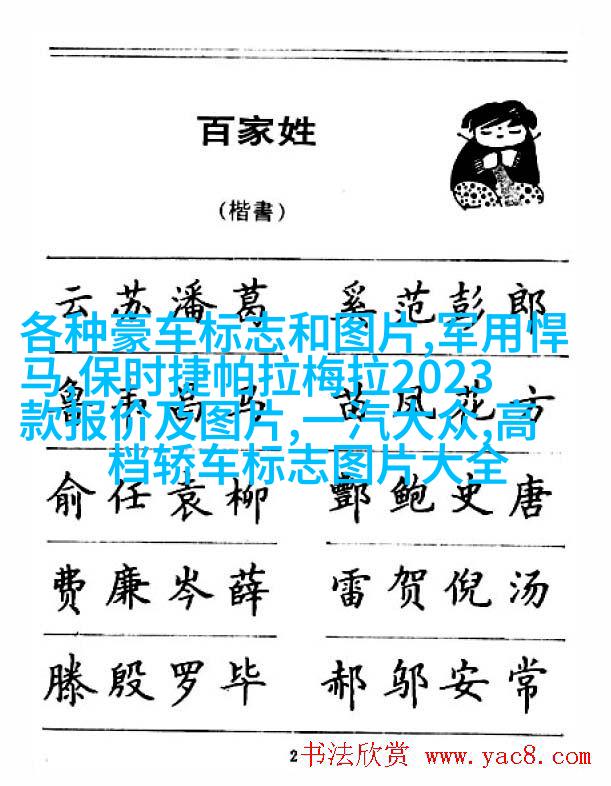 百家姓
(楷書)
云苏潘葛 奚范彭郎
各种豪车标志和图片,军用悍
马,保时捷帕拉梅拉2023
款报价及图片,一汽大众,高
档轿车标志图片大全
鲁韦昌马 苗凤花方
俞任袁柳 酆鲍史唐
费廉岑薛 雷贺倪汤
滕殷罗毕 郝邬安常
2
书法欣赏 www.yac8.com